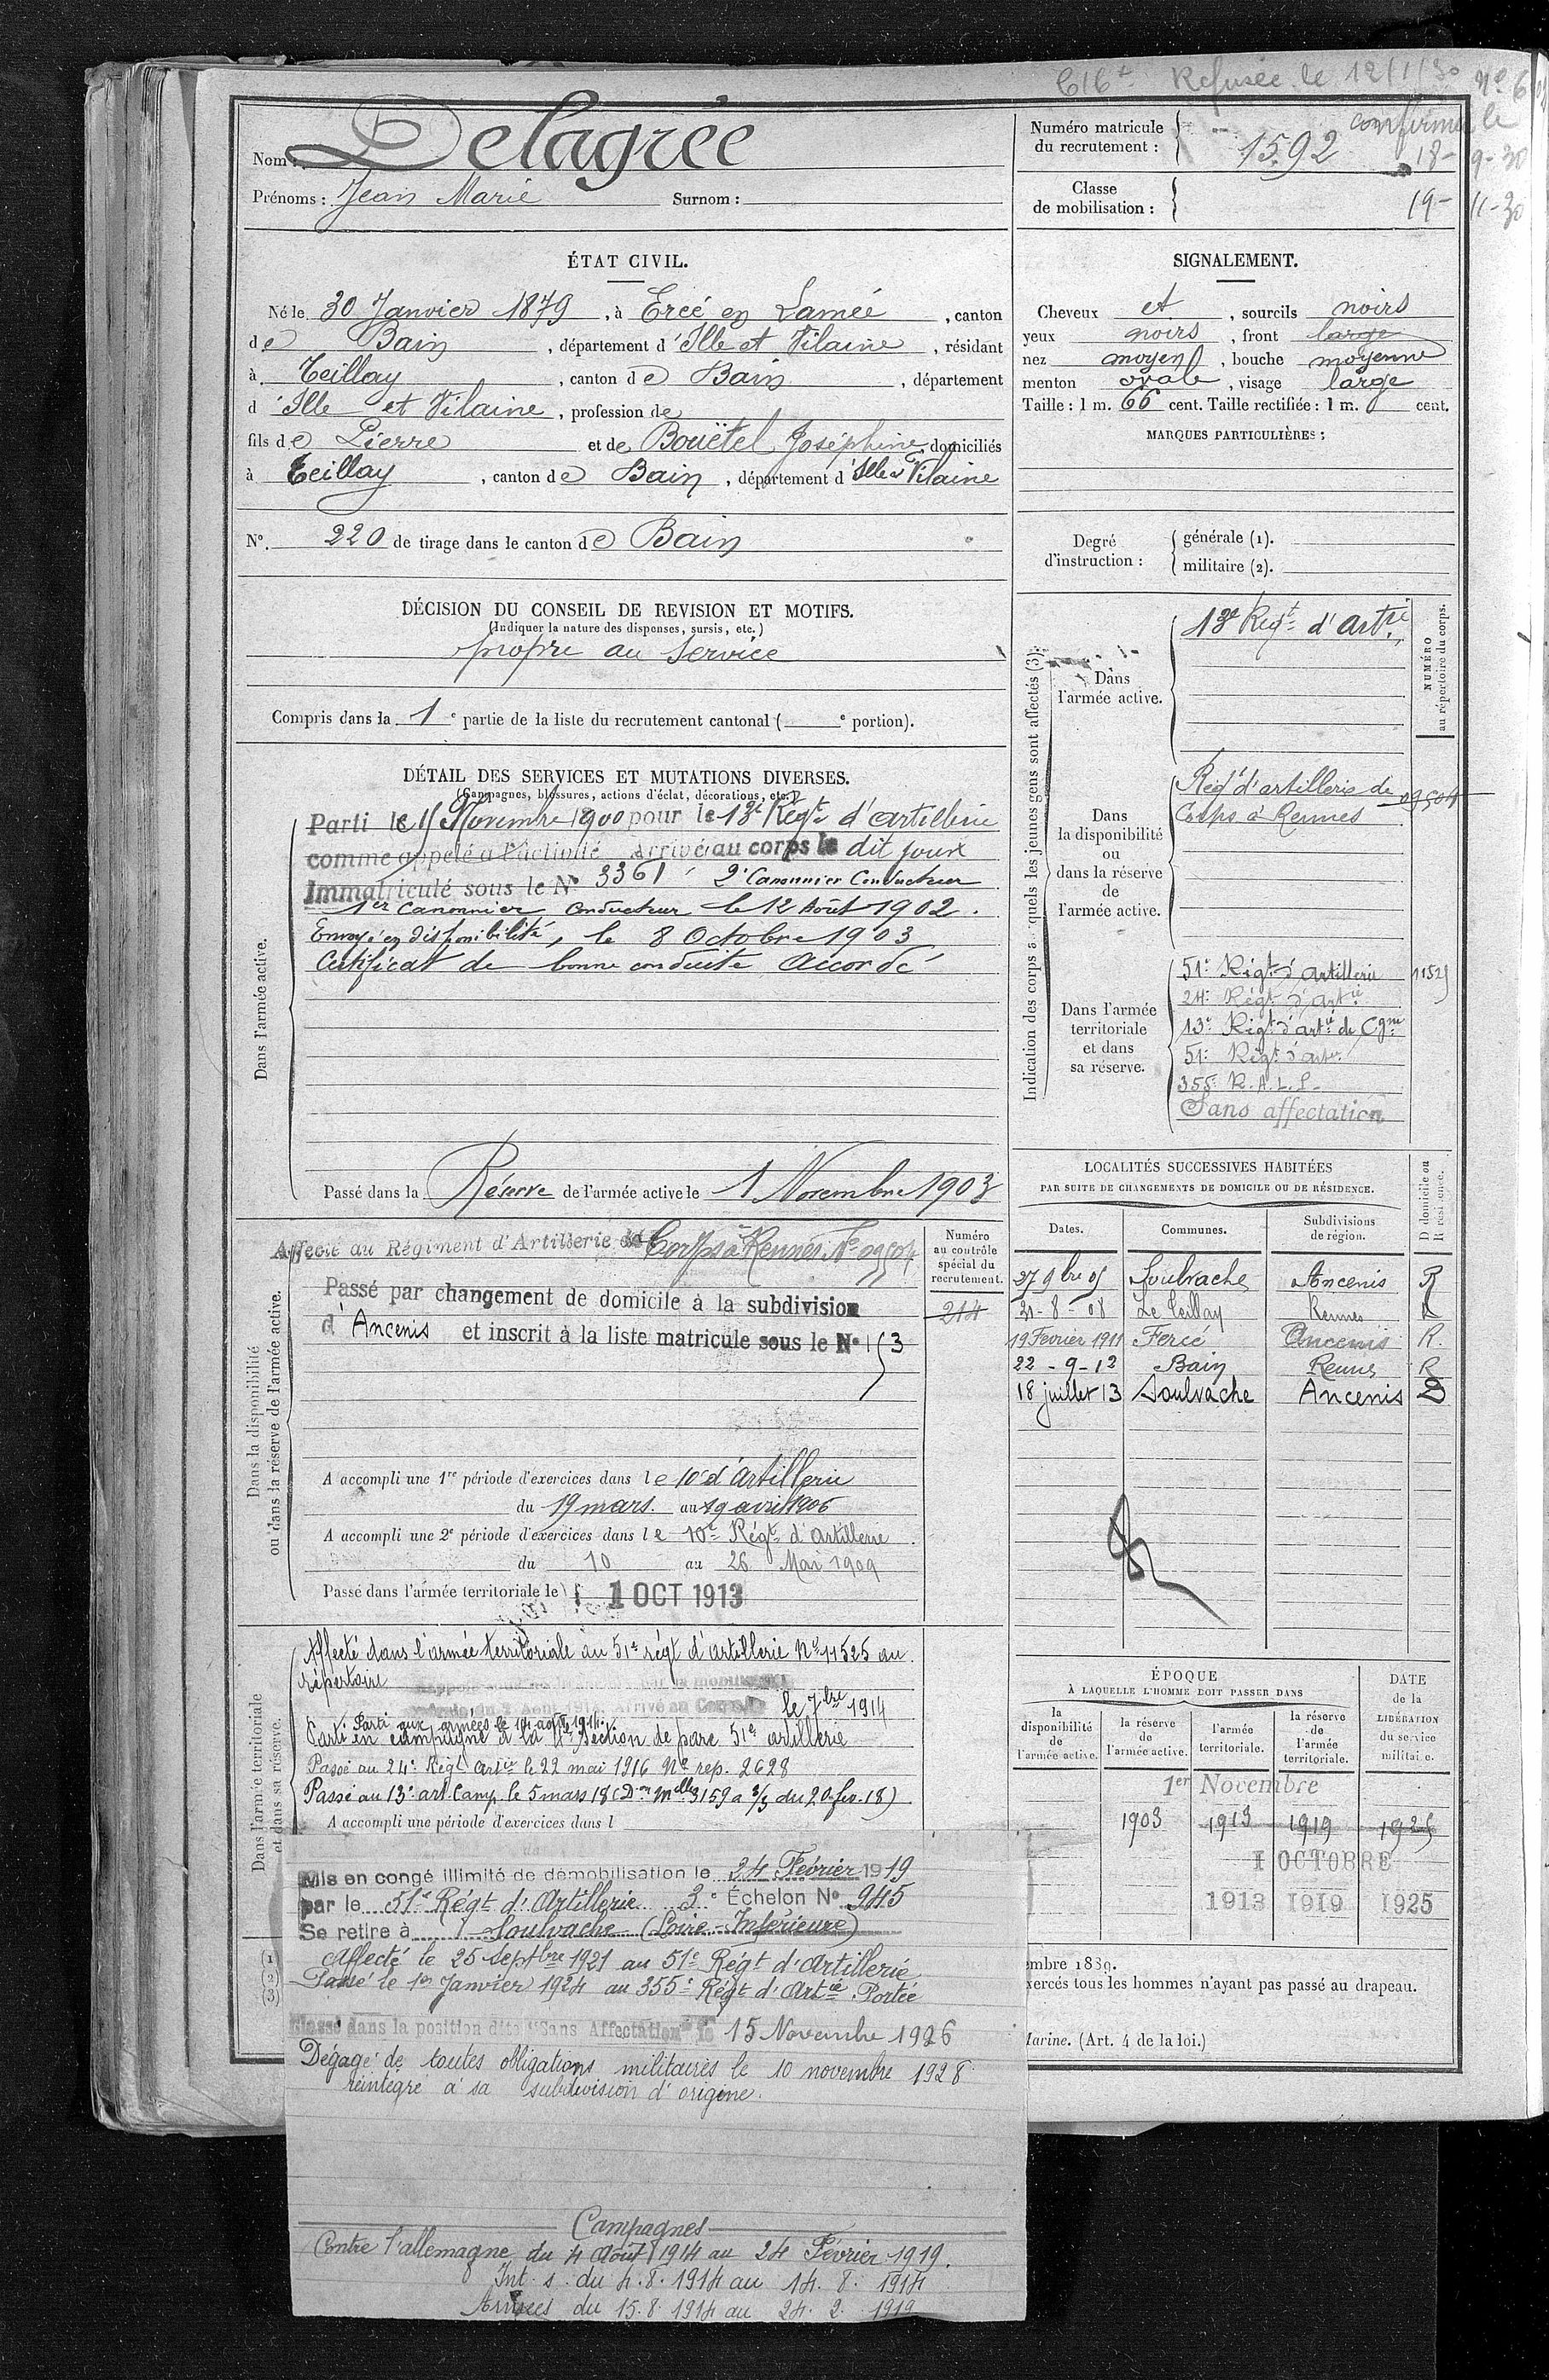 Refusée le 12/1/30
confirmé le
18-9-30
19-11-30
Nom : Delagrée
Prénoms : Jean Marie Surnom :
Numéro matricule du recrutement : 1592
Classe de mobilisation :
ÉTAT CIVIL.
Né le 30 Janvier 1879, à Ercé en Lamée, canton
de Bain, département d'Ille et Vilaine, résidant
à Teillay, canton de Bain, département
d'Ille et Vilaine, profession de
fils de Pierre et de Bouëtel Joséphine domiciliés
à Teillay, canton de Bain, département d'Ille et Vilaine
N°. 220 de tirage dans le canton de Bain
SIGNALEMENT.
Cheveux et, sourcils noirs
yeux noirs, front large
nez moyen, bouche moyenne
menton ovale, visage large
Taille : 1 m. 66 cent. Taille rectifiée : 1 m. cent.
MARQUES PARTICULIÈRES :
Degré d'instruction :
générale (1).
militaire (2).
DÉCISION DU CONSEIL DE REVISION ET MOTIFS.
(Indiquer la nature des dispenses, sursis, etc.)
propre au service
Compris dans la 1e partie de la liste du recrutement cantonal ( e portion).
DÉTAIL DES SERVICES ET MUTATIONS DIVERSES.
(Campagnes, blessures, actions d'éclat, décorations, etc.)
Dans l'armée active.
Parti le 15 Novembre 1900 pour le 13e Régt d'artillerie
comme appelé à l'activité Arrivé au corps le dit jour
Immatriculé sous le N° 3361 2e Canonnier Conducteur
1er Canonnier conducteur le 12 Août 1902.
Envoyé en disponibilité, le 8 Octobre 1903
Certificat de bonne conduite Accordé
Passé dans la Réserve de l'armée active le 1 Novembre 1903
Indication des corps quels les jeunes gens sont affectés (3).
NUMÉRO au répertoire du corps.
Dans l'armée active.
13e Regt d'artie
Dans la disponibilité ou dans la réserve de l'armée active.
Régt d'artillerie de
Corps à Rennes
09504
Dans l'armée territoriale et dans sa réserve.
51e Régt d'Artillerie 11525
24e Régt d'artie
13e Régt d'artie de Cgne
51e Régt d'art.
355 R.A.L.P.
Sans affectation
Dans la disponibilité ou dans la réserve de l'armée active.
Numéro au contrôle spécial du recrutement.
214
Affecté au Régiment d'Artillerie de Corps à Rennes N° 09504
Passé par changement de domicile à la subdivision
d'Ancenis et inscrit à la liste matricule sous le N° 153
A accompli une 1re période d'exercices dans le 10e d'Artillerie
du 19 mars au 19 avril 1906
A accompli une 2e période d'exercices dans le 10e Régt d'Artillerie
du 10 au 26 Mai 1909
Passé dans l'armée territoriale le 1 OCT 1913
LOCALITÉS SUCCESSIVES HABITÉES
PAR SUITE DE CHANGEMENTS DE DOMICILE OU DE RÉSIDENCE.
Dates. Communes. Subdivisions de région. D domicile ou R résidence.
27 9bre 05 Soulvache Ancenis R
31-8-08 Le Teillay Rennes R
19 Février 1911 Fercé Ancenis R.
22-9-12 Bain Rennes R
18 juillet 13 Soulvache Ancenis D
Dans l'armée territoriale et dans sa réserve.
Affecté dans l'armée territoriale au 51e régt d'artillerie N° 11525 au
répertoire
le 7bre 1914
Parti aux armées le 14 août 1914.
Parti en campagne à la 4e Section de parc 51e artillerie
Passé au 24e Régt Artie le 22 mai 1916 N° rep. 2628
Passé au 13e art Camp. le 5 mars 18 (Don Mlle 3159 a 3/3 du 20 fev. 18)
A accompli une période d'exercices dans l
ÉPOQUE
À LAQUELLE L'HOMME DOIT PASSER DANS
la disponibilité de l'armée active.
la réserve de l'armée active.
l'armée territoriale.
la réserve de l'armée territoriale.
DATE de la LIBÉRATION du service militaire.
1er Novembre
1903 1913 1919 1925
1 OCTOBRE
1913 1919 1925
Mis en congé illimité de démobilisation le 24 Février 1919
par le 51e Régt d'Artillerie 3e Échelon N° 945
Se retire à Soulvache (Loire-Inférieure)
Affecté le 25 Septbre 1921 au 51e Régt d'Artillerie
Passé le 1er Janvier 1924 au 355e Régt d'Artie Portée
Classé dans la position dite "Sans Affectation" le 15 Novembre 1926
Dégagé de toutes obligations militaires le 10 novembre 1928
réintégré à sa subdivision d'origine.
(1)
(2)
(3)
embre 1889.
xercés tous les hommes n'ayant pas passé au drapeau.
Marine. (Art. 4 de la loi.)
Campagnes
Contre l'allemagne du 4 Août 1914 au 24 Février 1919.
Int. s. du 4.8.1914 au 14.8.1914
Armées du 15.8.1914 au 24.2.1919